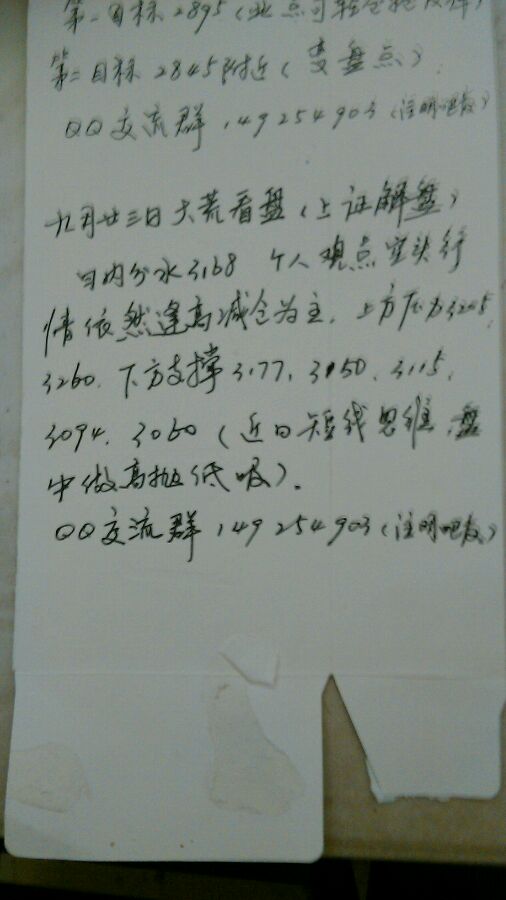 第一目标2895(此点可轻仓抢反弹)
第二目标2845附近(变盘点)
QQ交流群,149254903(注明吧友)
九月廿三日大荒看盘(上证解盘)
日内分水3168 个人观点空头行
情依然逢高减仓为主.上方压力3205,
3260.下方支撑3177.3150.3115.
3094.3060(近日短线思维,盘
中做高抛低吸).
QQ交流群,149254903(注明吧友)